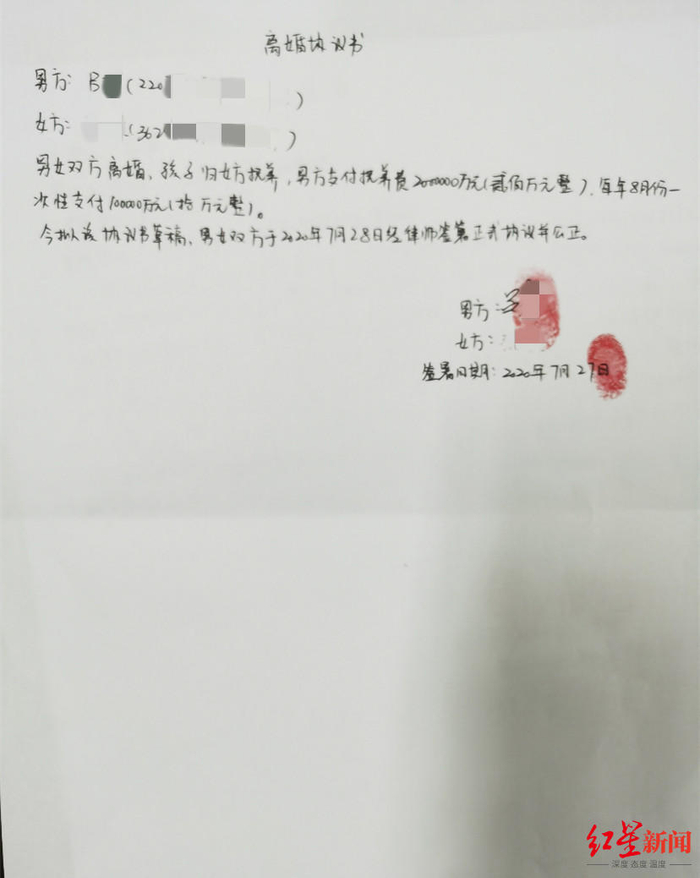 离婚协议书
男方: (220
)
女方: (362
)
男女双方离婚、孩子归女方抚养,男方支付抚养费2000000万元(贰佰万元整),每年8月份一
次性支付100000万元(拾万元整)。
今拟该协议书草稿、男女双方于2020年7月28日经律师签署正式协议并公正。
男方:
女方:
签署日期: 2020年7月27日
红星新闻
深度 态度 温度